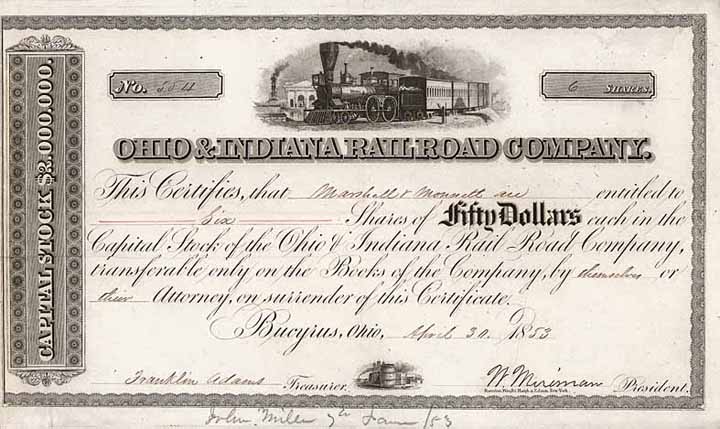 No. 
6 SHARES.
CAPITAL STOCK $2,000,000.
OHIO & INDIANA RAIL ROAD COMPANY.
This Certifies, that Marshall & Monnett are entitled to
Six Shares of Fifty Dollars each in the
Capital Stock of the Ohio & Indiana Rail Road Company,
transferable only on the Books of the Company, by themselves or
their Attorney, on surrender of this Certificate.
Bucyrus, Ohio, April 30 1853
Franklin Adams Treasurer. President.
John /53